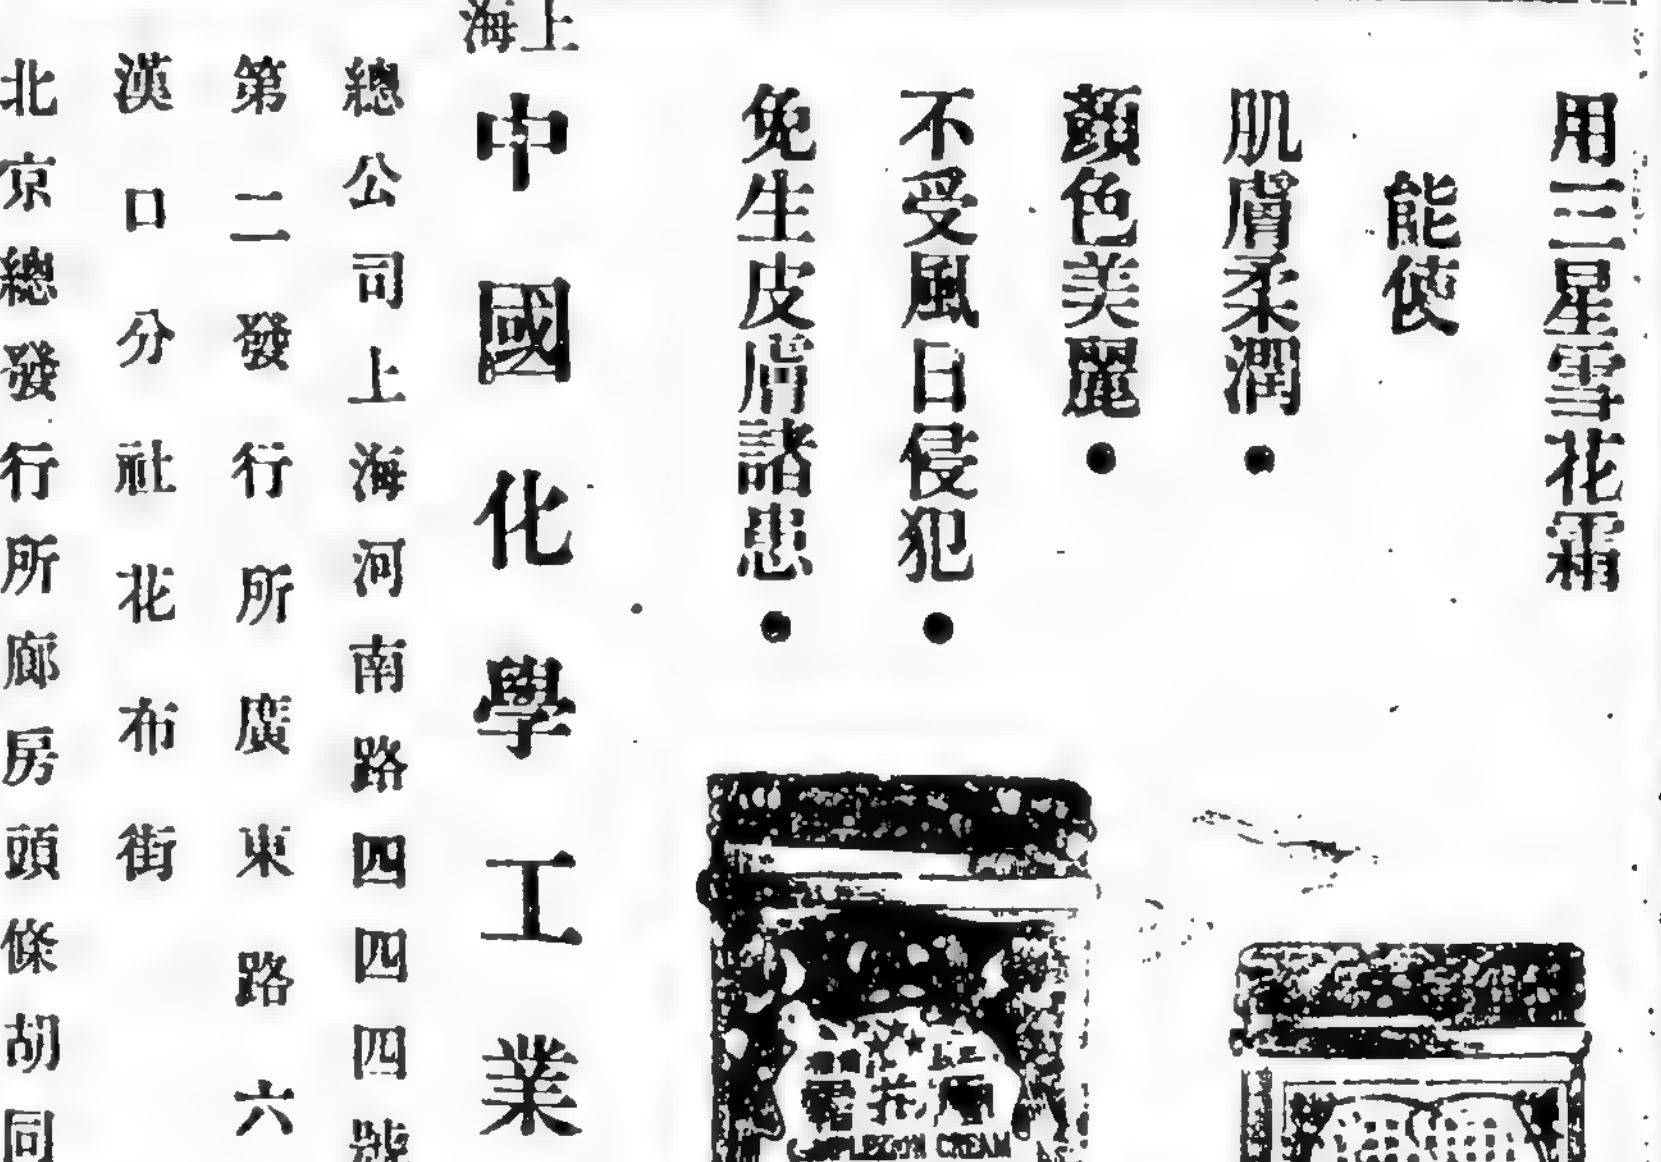 用三星雪花霜
能使
肌膚柔潤●
顏色美麗●
不受風日侵犯●
免生皮膚諸患●
上海
中國化學工業
總公司上海河南路四四四號
第二發行所廣東路六
漢口分社花布街
北京總發行所廊房頭條胡同
CREAM